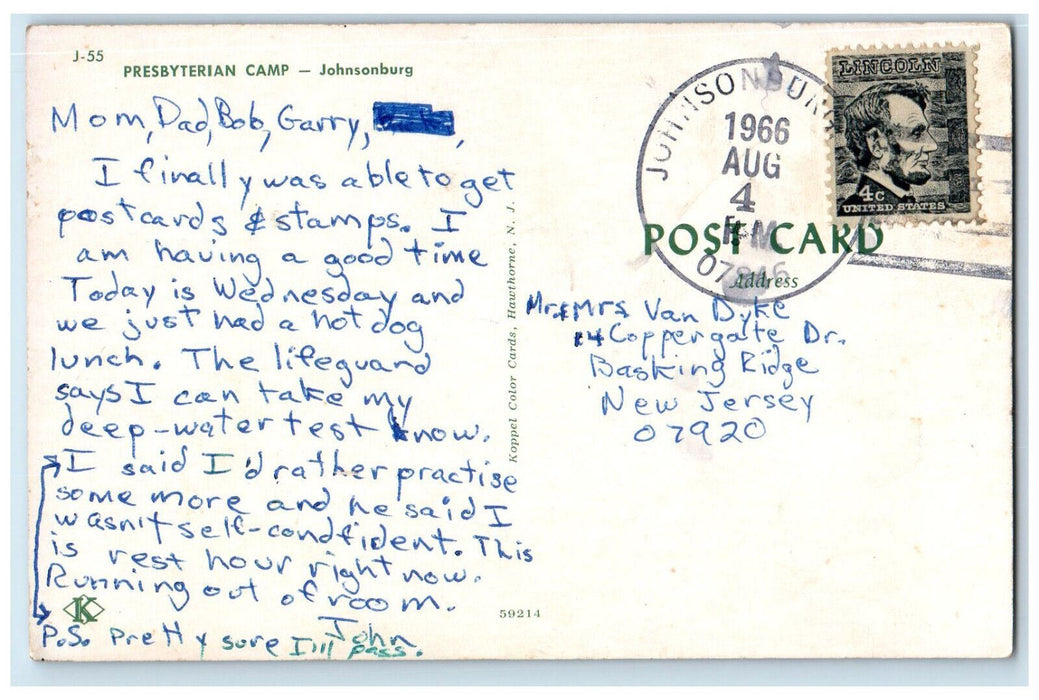 J-55
PRESBYTERIAN CAMP — Johnsonburg
Mom, Dad, Bob, Garry, ,
I finally was able to get
postcards & stamps. I
am having a good time
Today is Wednesday and
we just had a hot dog
lunch. The lifeguard
says I can take my
deep-water test know.
I said I'd rather practise
some more and he said I
wasn't self-condfident. This
is rest hour right now.
Running out of room.
John
P.S. Pretty sure I'll pass.
K
59214
Koppel Color Cards, Hawthorne, N. J.
JOHNSONBURG
1966
AUG
4
PM
07846
LINCOLN
4c
UNITED STATES
POST CARD
Address
Mr & Mrs Van Dyke
14 Coppergate Dr.
Basking Ridge
New Jersey
07920